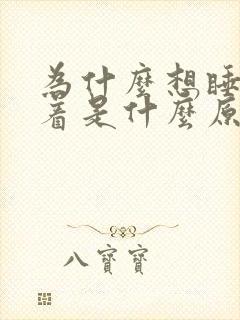 為什麼想睡
着是什麼原
八寶寶